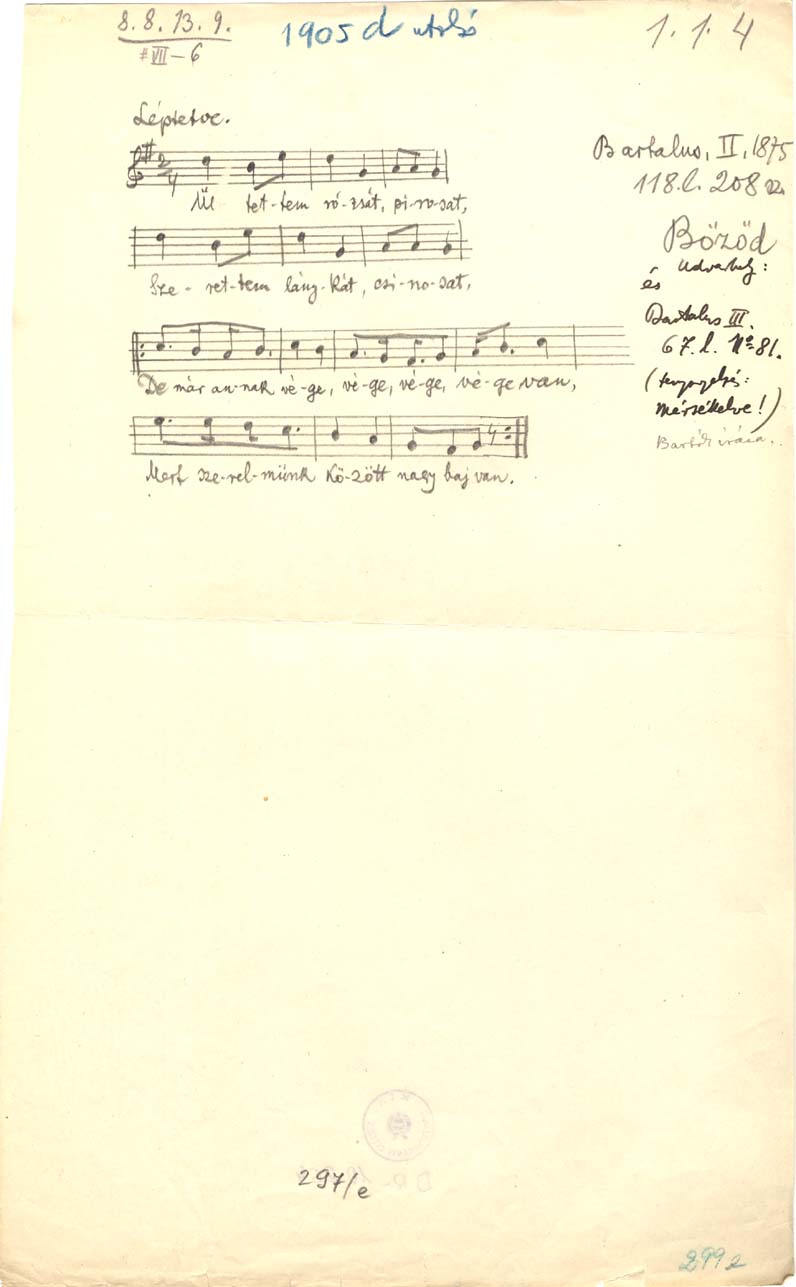 8. 8. 13. 9.
#VII–6
1905 d utolsó
1. 1. 4
Léptetve.
2
4
Bartalus, II, 1875
118. l. 208 sz.
Ül tet-tem ró-zsát, pi-ro-sat,
Bőzöd
Udvarhely:
és
Sze-ret-tem lány-kát, csi-no-sat,
Bartalus III.
67. l. No 81.
De már an-nak vé-ge, vé-ge, vé-ge, vé-ge van,
Mérsékelve!)
Bartók írása.
Mert sze-rel-münk kö-zött nagy baj van.
297/e
299 e